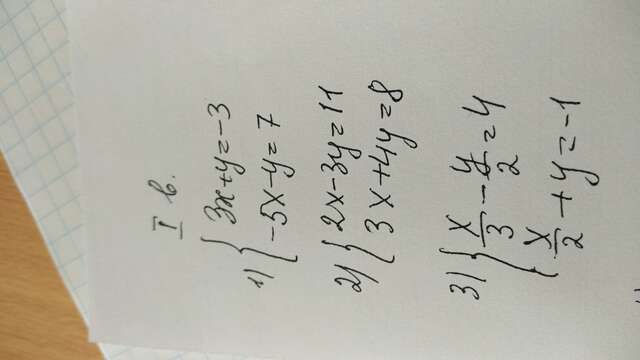 I в.
1) { 3x+y=-3
-5x-y=7
2) { 2x-3y=11
3x+4y=8
3) { x/3 - y/2 = 4
x/2 + y = -1